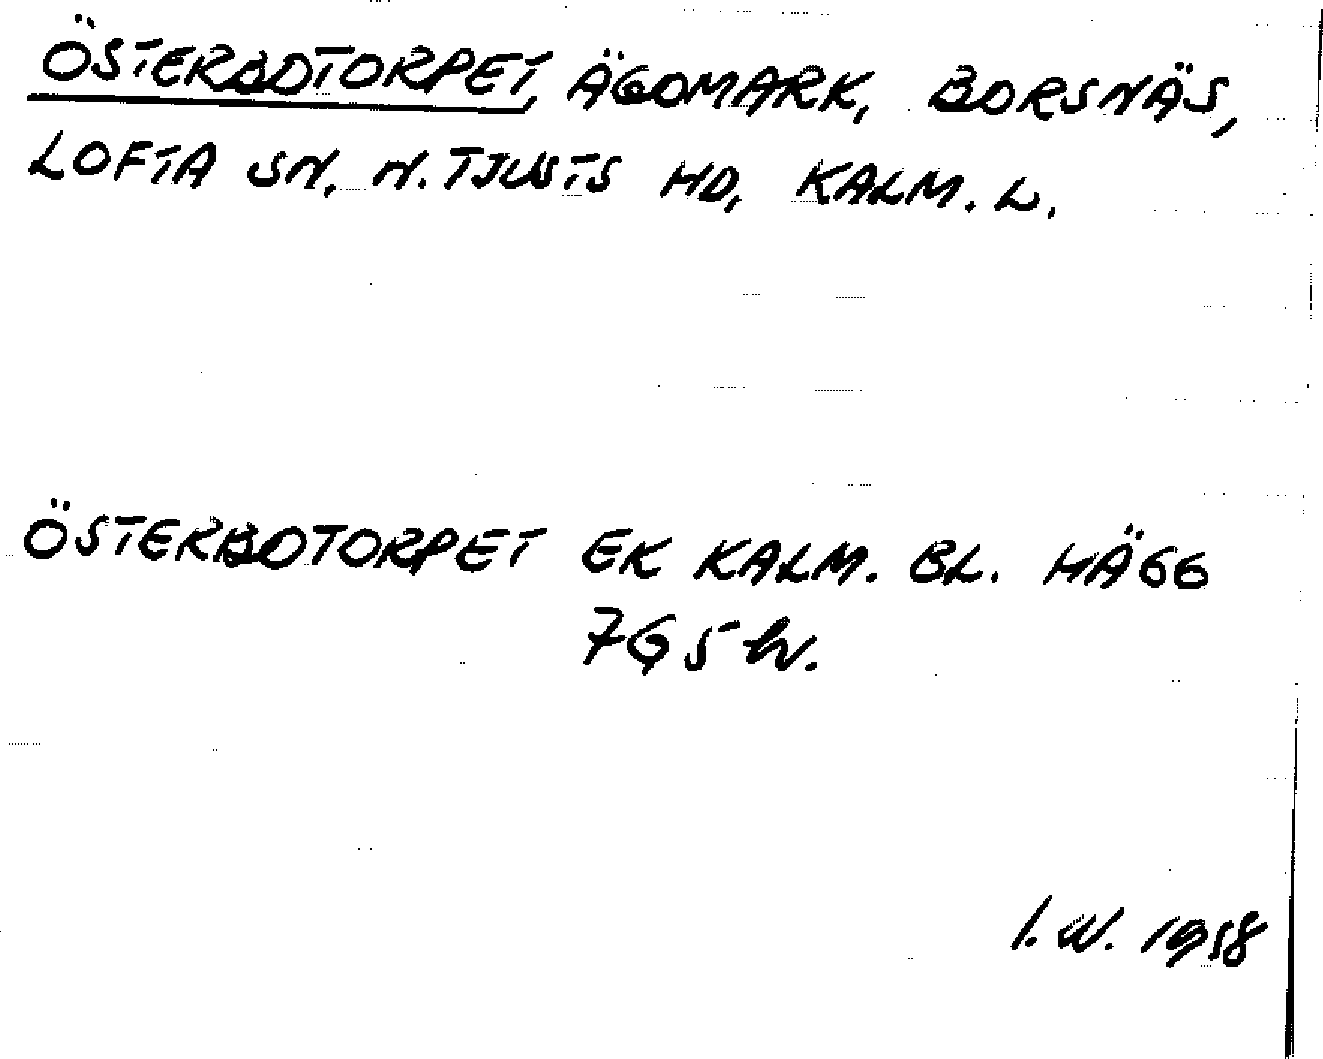 ÖSTERBOTORPET, ÄGOMARK, BORSNÄS,
LOFTA SN, N. TJUSTS HD, KALM. L.
ÖSTERBOTORPET EK KALM. BL. HÄGG
7G5h.
I.W. 1958